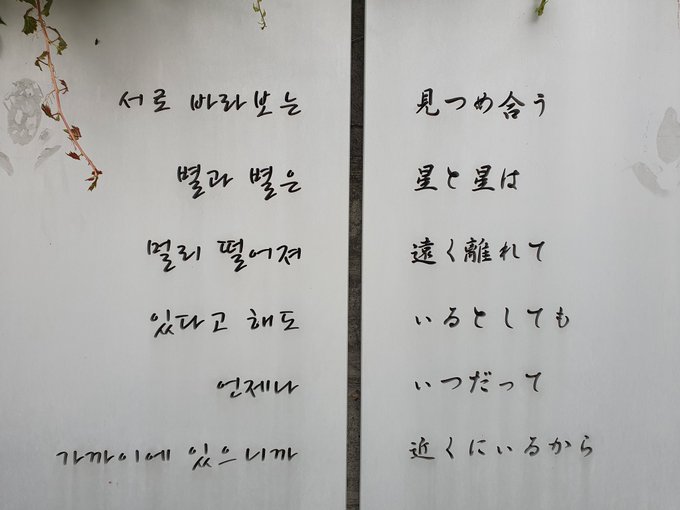 서로 바라보는
별과 별은
멀리 떨어져
있다고 해도
언제나
가까이에 있으니까
見つめ合う
星と星は
遠く離れて
いるとしても
いつだって
近くにいるから